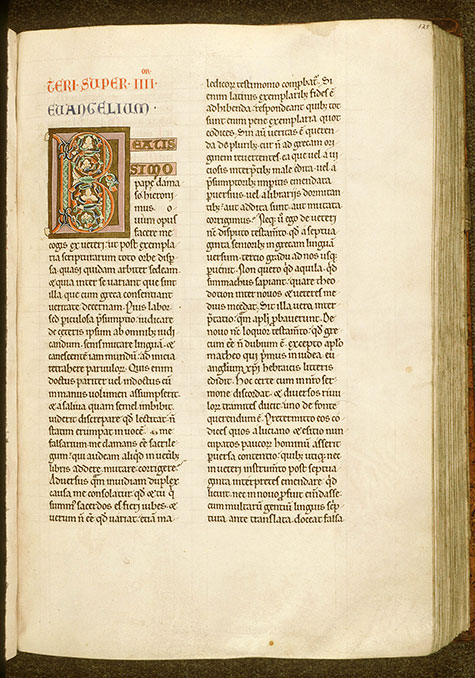 125
on
TERI SUPER IIII
EUANGELIUM ·
BEATIS
SIMO
pape dama
so hieroni
mus · o
uum opus
facere me
cogis ex ueteri: ut post exempla
ria scripturarum toto orbe disp
sa quasi quidam arbiter sedeam:
& quia inter se uariant que sint
illa que cum greca consentiant
ueritate decernam. Pius labor
sed piculosa psumptio: iudicare
de ceteris ipsum ab omnib; iudi
candum. senis mutare linguā. &
canescentē iam mundū ad inicia
retrahere paruulorū. Quis enim
doctus pariter uel indoctus cū
in manus uolumen assumpserit.
& a saliua quam semel imbibit
uiderit discrepare qd lectitat: n̄
statim erumpat in uocē. me
falsarium me clamans ēe sacrile
gum: qui audeam aliqd in ueteri
libris addere. mutare. corrigere.
Aduersus qm inuidiam duplex
causa me consolatur. qd & tu q
summ sacerdos es fieri iubes. &
uerum n̄ ēe qd uariat: etiā ma
ledicor testimonio compbat. Si
enim latinis exemplarib; fides ē
adhibenda: respondeant quib; tot
sunt enim pene exemplaria quot
codices. Sin aū ueritas ē queren
da de plurib; cur n̄ ad grecam ori
ginem reuertentes. ea que uel a ui
ciosis interptib; male edita. uel a
psumptorib; impitis emendata
puersius. uel a librariis dormitan
tib; aut addita sunt aut mutata
corrigimus? Neq; ū ego de ueteri
n̄ disputo testamto. qd a septua
ginta seniorib; in grecam linguā
uersum. tercio gradu ad nos usq;
puenit. Non quero qd aquila. qd
simmachus sapiant. quare theo
docion inter nouos & ueteres me
dius incedat. Sit illa uera inter
ptatio. quam apli pbauerunt. De
nouo nc loquor testamto. qd gre
cum ēe n̄ dubium ē. excepto aplo
matheo qui pmus in iudea. eu
angliūm xpi hebraicis litteris
edidit. Hoc certe cum in nro ser
mone discordat. & diuersos riuu
lor tramites ducit: uno de fonte
querendum ē. Pretermitto eos co
dices quos a luciano & esitio nun
cupatos paucor hominū asserit
puersa contentio. quib; utiq; nec
in ueteri instrumto post septua
ginta interpretes emendare qd
licuit. nec in nouo pfuit emdasse:
cum multarū gentiū linguis scrip
tura ante translata. doceat falsa